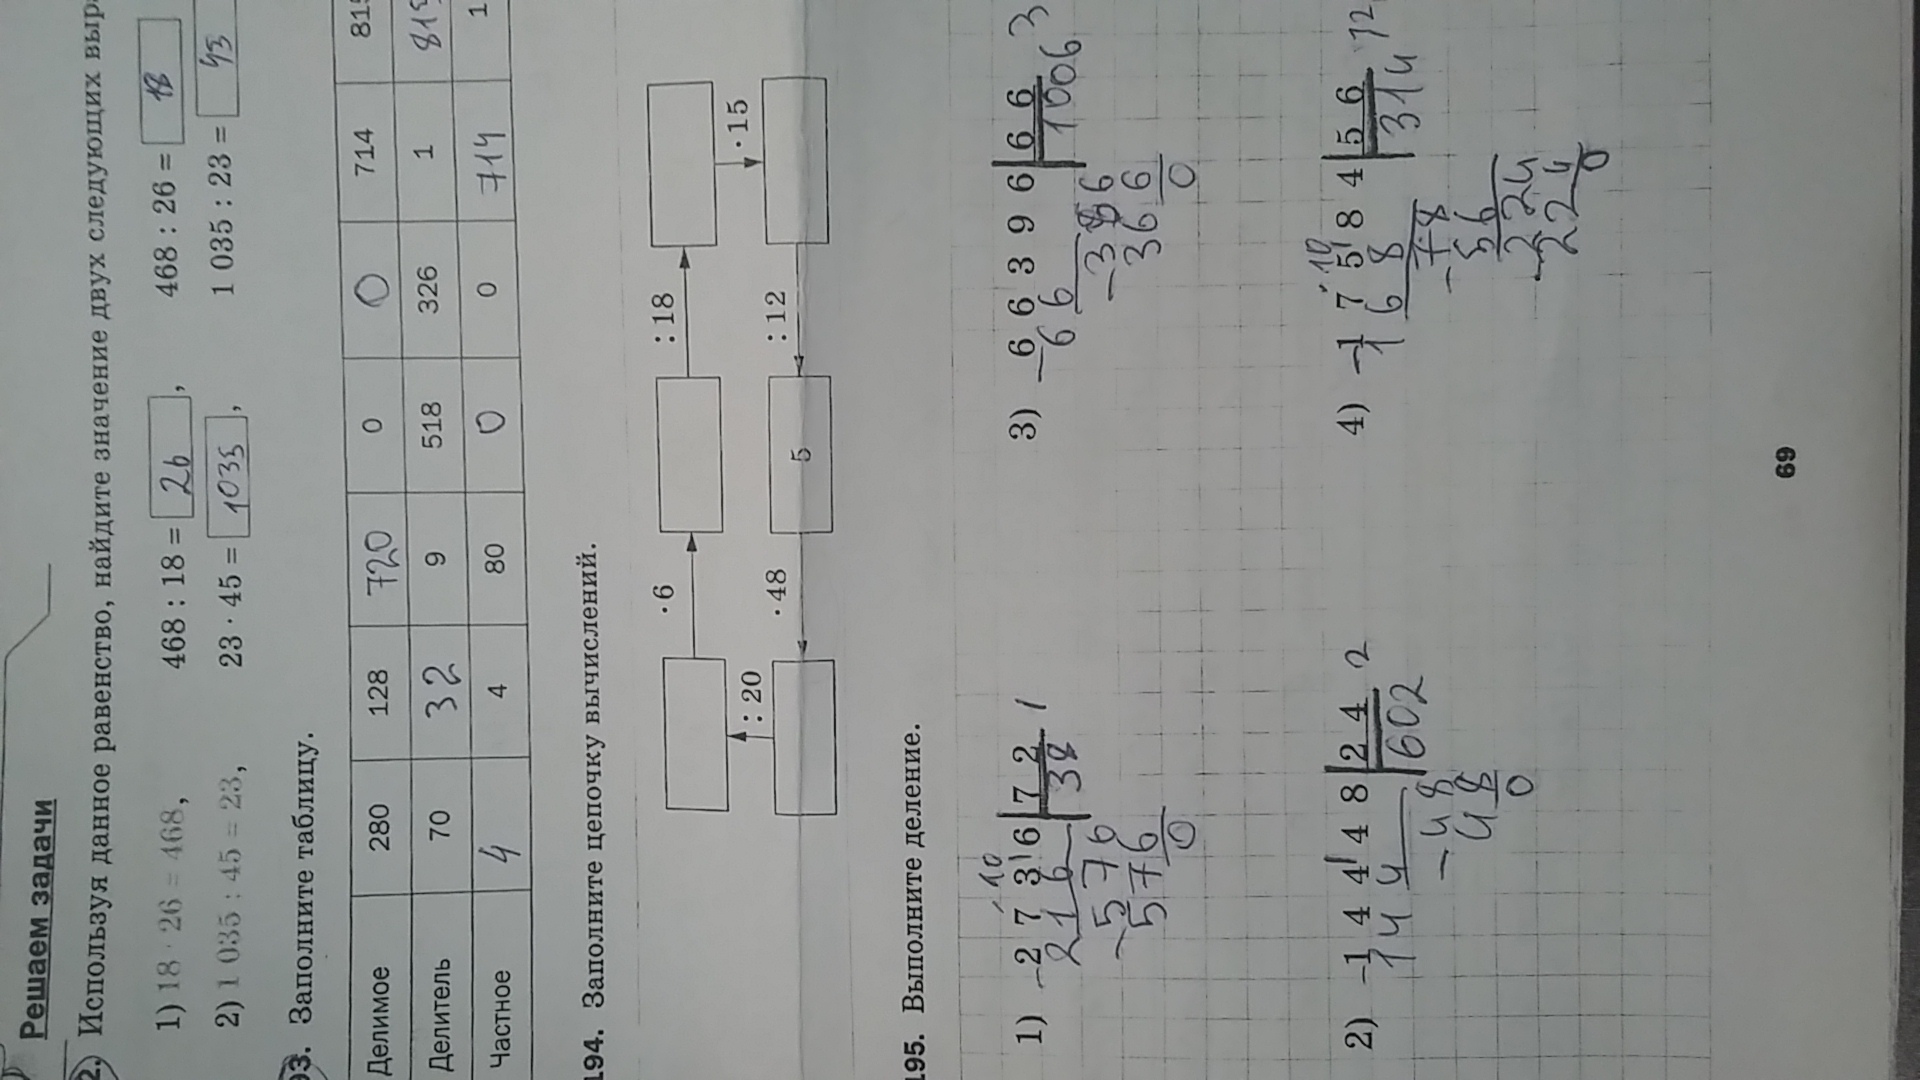 Решаем задачи
2. Используя данное равенство, найдите значение двух следующих
1) 18 · 26 = 468, 468 : 18 = 26, 468 : 26 = 18
2) 1 035 : 45 = 23, 23 · 45 = 1035, 1 035 : 23 = 45
93. Заполните таблицу.
Делимое 280 128 720 0 0 714
Делитель 70 32 9 518 326 1
Частное 4 4 80 0 0 714 1
194. Заполните цепочку вычислений.
· 6 : 18
: 20 · 15
· 48 5 : 12
195. Выполните деление.
1) 2 7 3 6 7 2 1
10
2 1 6 38
5 7 6
5 7 6
0
2) 1 4 4 4 8 2 4 2
1 4 4 602
4 8
4 8
0
3) 6 6 3 9 6 6 6 3
6 6 1006
3 9 6
3 9 6
0
4) 1 7 5 8 4 5 6
10
1 6 8 314
7 8
5 6
2 2 4
2 2 4
0
69